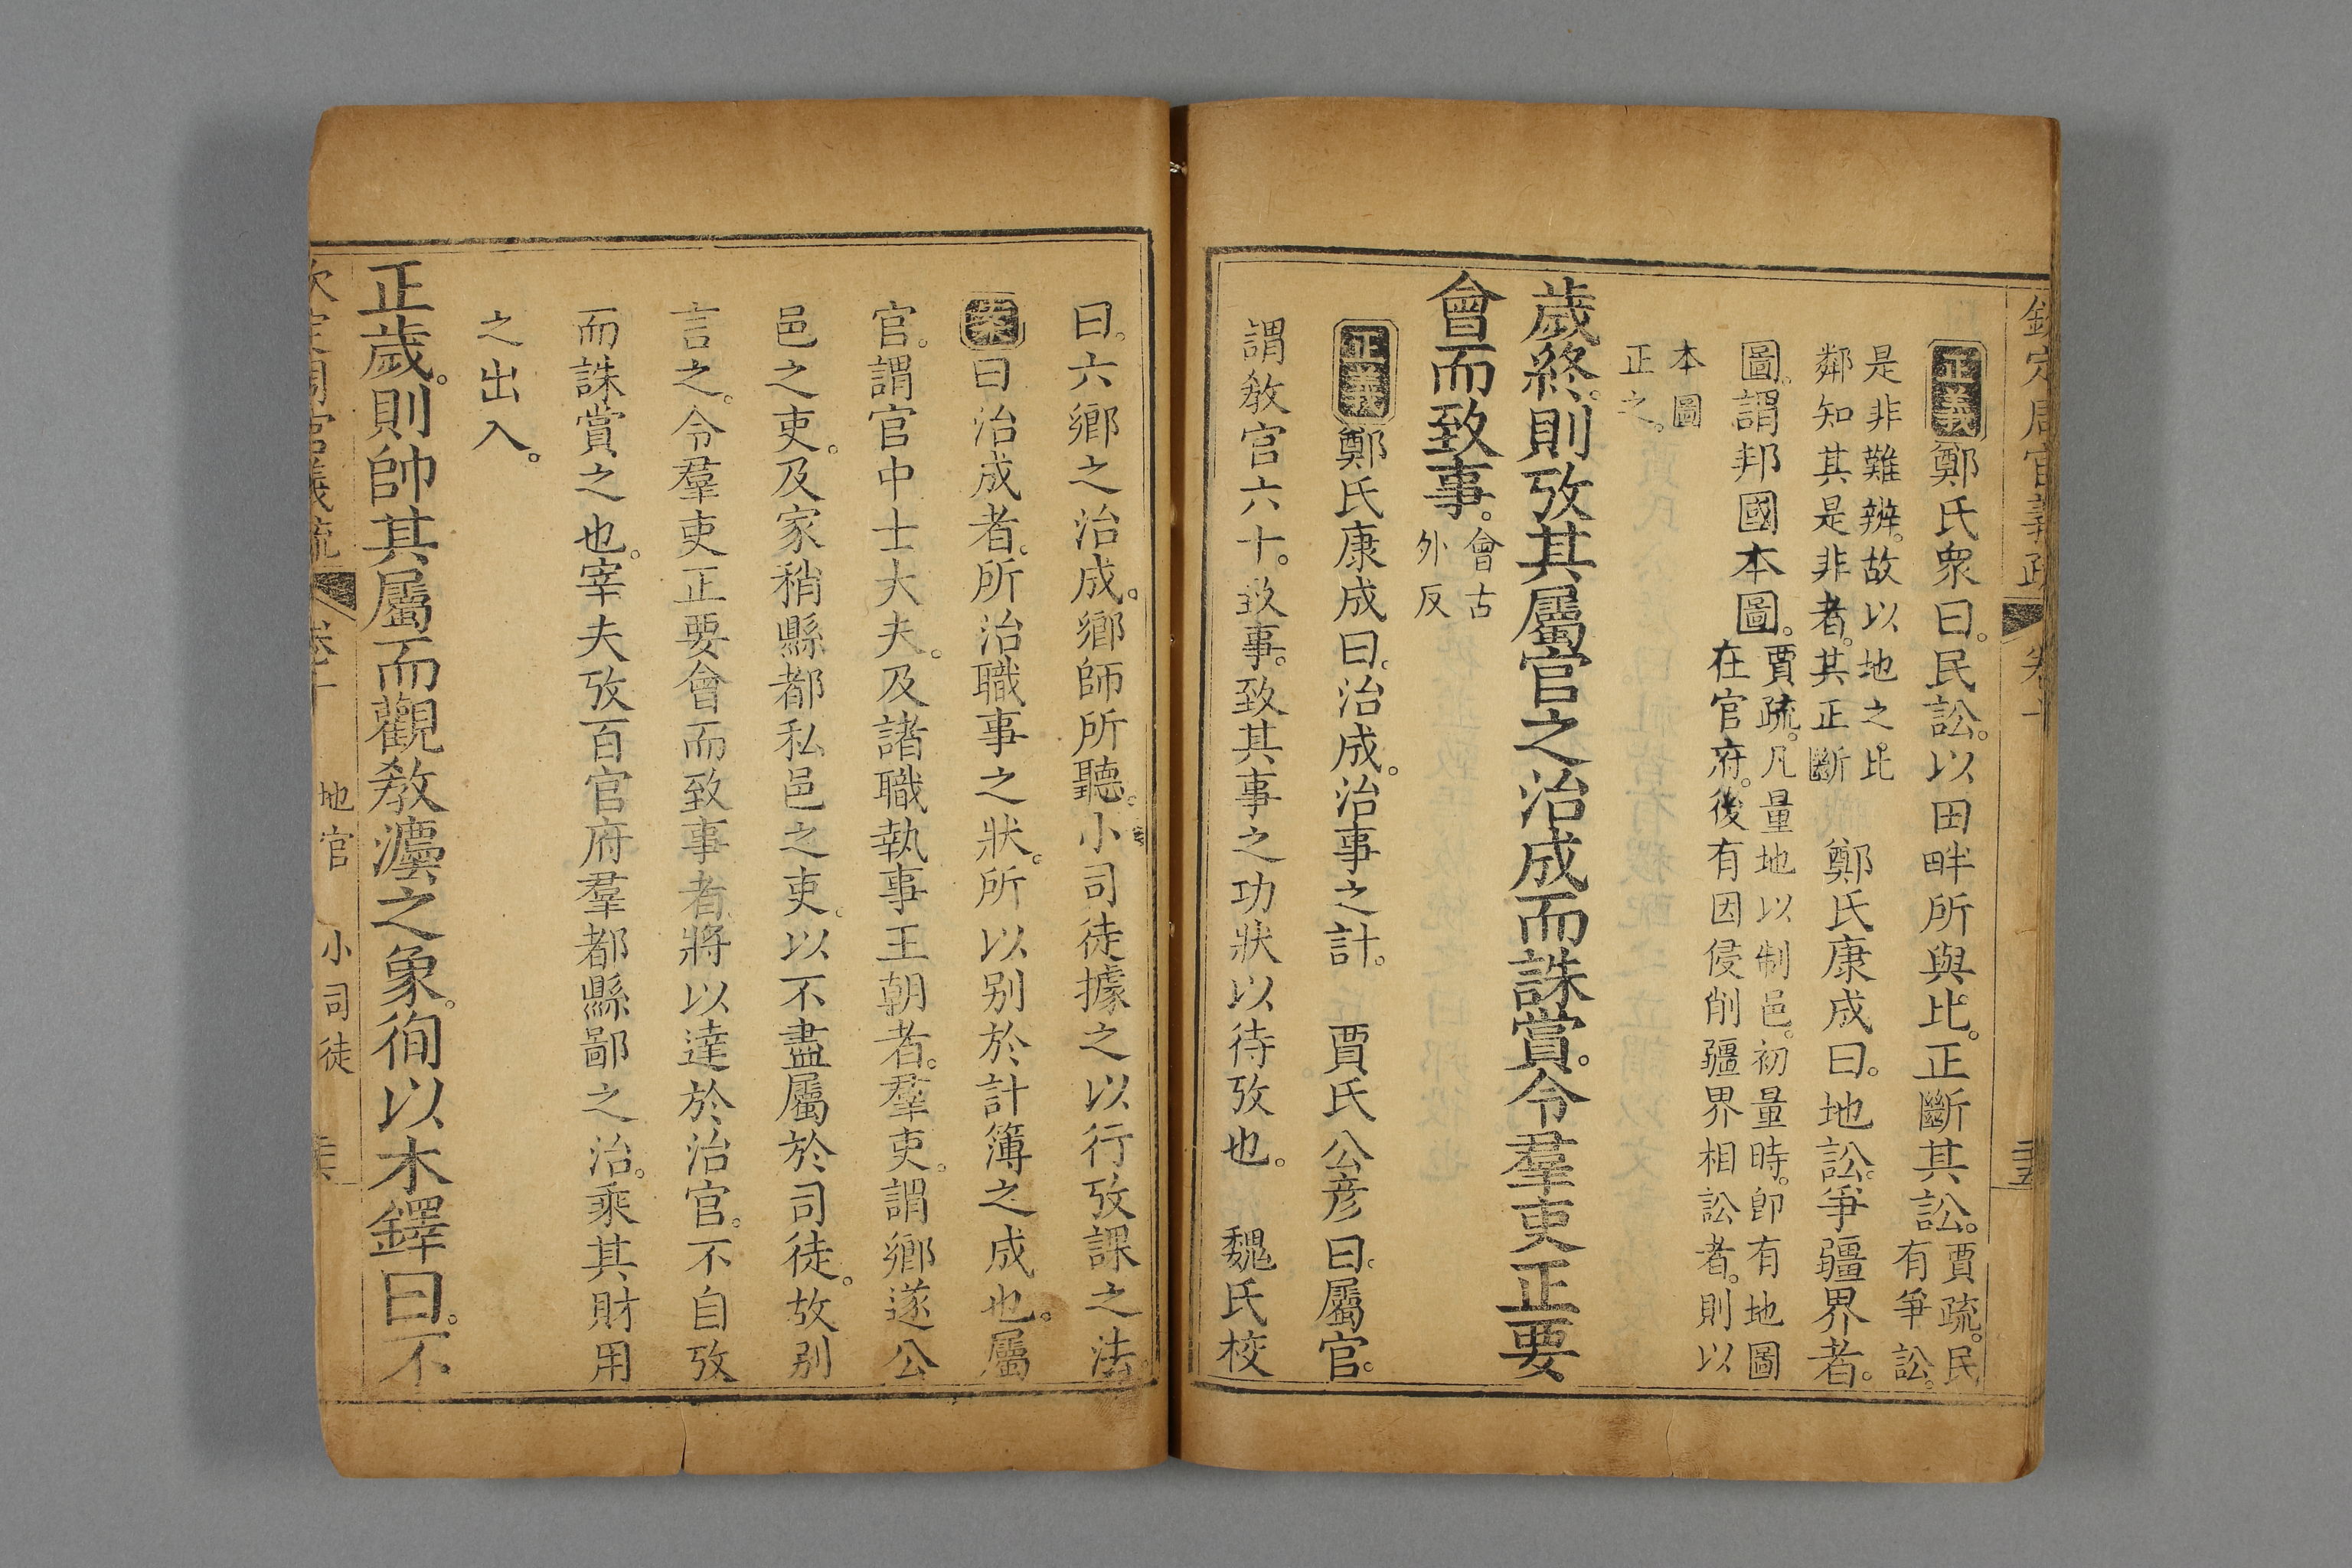 欽定周官義疏 卷十
正義鄭氏衆曰。民訟。以田畔所與比。正斷其訟。賈疏。民有爭訟。
是非難辨。故以地之比鄰知其是非者。其正斷 鄭氏康成曰。地訟。爭疆界者。
圖。謂邦國本圖。賈疏。凡量地以制邑。初量時。卽有地圖在官府。後有因侵削疆界相訟者。則以
本圖正之。
歲終。則攷其屬官之治成而誅賞。令羣吏正要
會而致事。會古外反
正義鄭氏康成曰。治成。治事之計。 賈氏公彦曰。屬官。
謂敎官六十。致事。致其事之功狀以待攷也。 魏氏校
曰。六鄉之治成。鄉師所聽。小司徒據之以行攷課之法。
案曰治成者。所治職事之狀。所以别於計簿之成也。屬
官。謂官中士大夫。及諸職執事王朝者。羣吏。謂鄉遂公
邑之吏。及家稍縣都私邑之吏。以不盡屬於司徒。故别
言之。令羣吏正要會而致事者。將以達於治官。不自攷
而誅賞之也。宰夫攷百官府羣都縣鄙之治。乘其財用
之出入。
正歲。則帥其屬而觀敎灋之象。徇以木鐸曰。不
欽定周官義疏 卷十 地官 小司徒